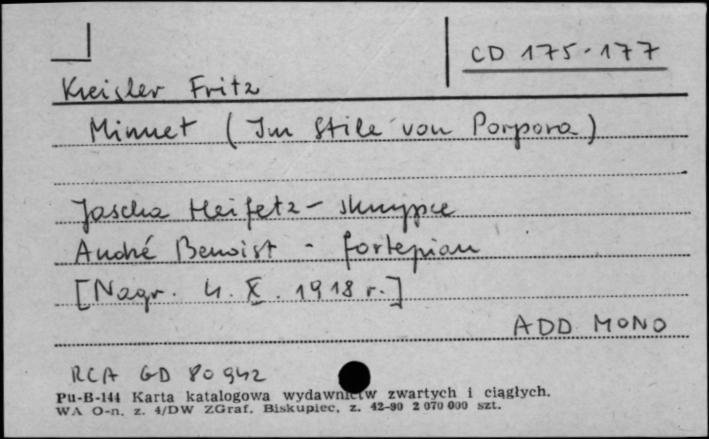 CD 175-177
Kreisler Fritz
Minuet (Im Stile von Porpora)
Jascha Heifetz - skrzypce
André Benoist - fortepian
[Nagr. 4. X. 1918 r.]
ADD MONO
RCA GD 80942
Pu-B-144 Karta katalogowa wydawnictw zwartych i ciągłych.
WA O-n. z. 4/DW ZGraf. Biskupiec, z. 42-90 2 070 000 szt.